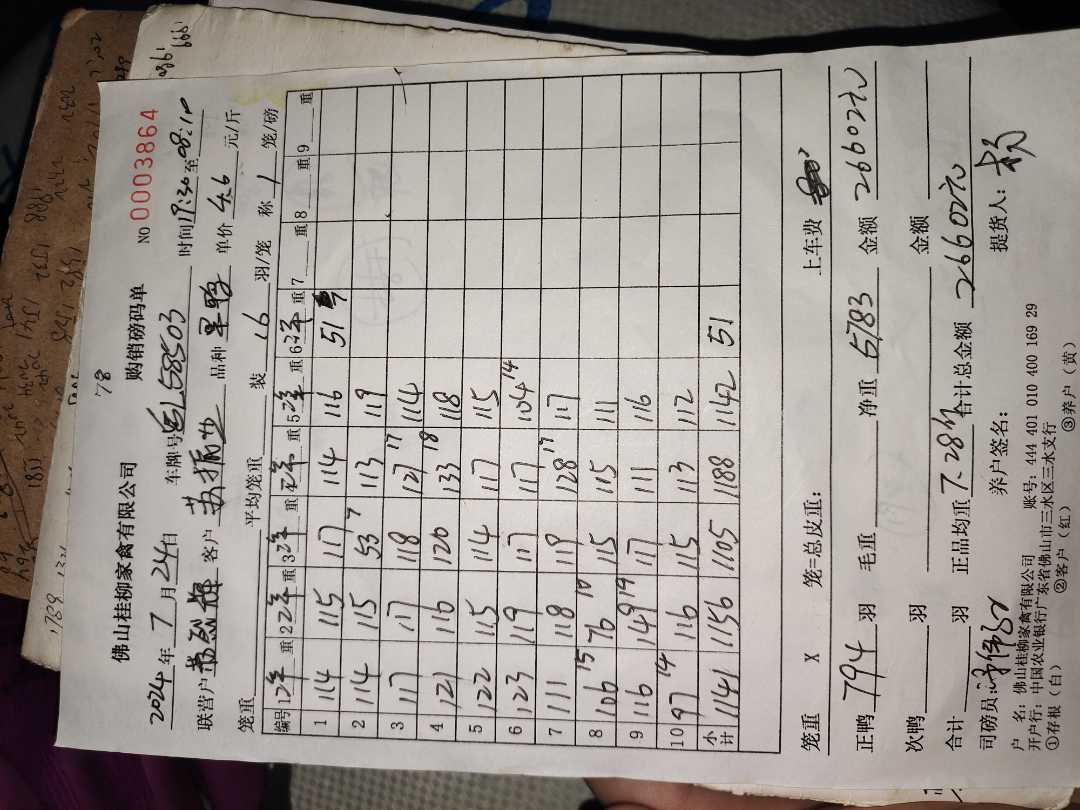 78
佛山桂柳家禽有限公司 购销磅码单 NO 0003864
2024年7月24日 车牌号 58503 时间 17:30至08:10
联营户 客户 苏振业 品种 单价 4.6 元/斤
笼重 平均笼重 装 16 羽/笼 称 1 笼/磅
编号 1 重 2 重 3 重 重 5 重 6 重 7 重 8 重 9 重
1 114 115 117 114 116 51
2 114 115 53 7 113 119
3 117 117 118 127 17 114
4 121 116 120 133 18 118
5 122 115 114 117 115
6 123 119 117 117 104 14
7 111 118 119 128 17 117
8 106 15 76 10 115 115 111
9 116 149 19 117 111 116
10 97 14 116 115 113 112
小计 1141 1156 1105 1188 1142 51
笼重 X 笼=总皮重: 上车费
正鸭 794 羽 毛重 净重 5783 金额 26602元
次鸭 羽 金额
合计 羽 正品均重 7.28斤 合计总金额 26602元
司磅员: 养户签名: 提货人:
户 名: 佛山桂柳家禽有限公司 账号: 444 401 010 400 169 29
开户行: 中国农业银行广东省佛山市三水区三水支行
①存根(白) ②客户(红) ③养户(黄)